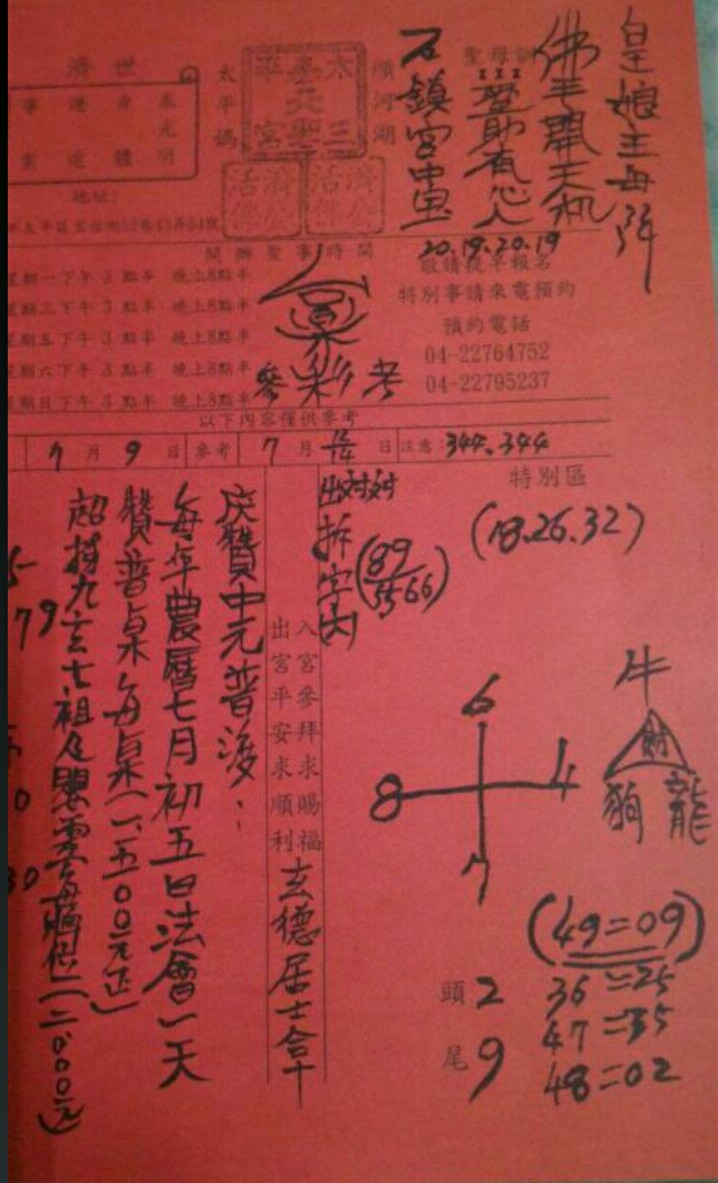 皇娘主母降
佛手開天机
聖母訓
聖助有心人
石鎮宮中寶
20.19.20.19
順河湖
太平媽
木柵
三聖宮
濟公活佛
濟公活佛
濟世
地址:
開辦聖事時間
星期一下午3點半 晚上8點半
星期三下午3點半 晚上8點半
星期五下午3點半 晚上8點半
星期六下午3點半 晚上8點半
星期日下午3點半 晚上8點半
敬請提早報名
特別事請來電預約
預約電話
04-22764752
04-22795237
參彩考
以下內容僅供參考
7月9日 參考 7月 日 注意:344.344
特別區
(18.26.32)
出對對
拆字肉
(89
5566)
入宮參拜求賜福
出宮平安求順利
玄德居士合十
慶贊中元普渡:
每年農曆七月初五日法會一天
贊普桌每桌(一、五00元正)
超拔九玄七祖及嬰靈
(二000元)
79
6
8 4
7
牛
財
狗 龍
(49=09)
36=25
47=35
48=02
頭 2
尾 9